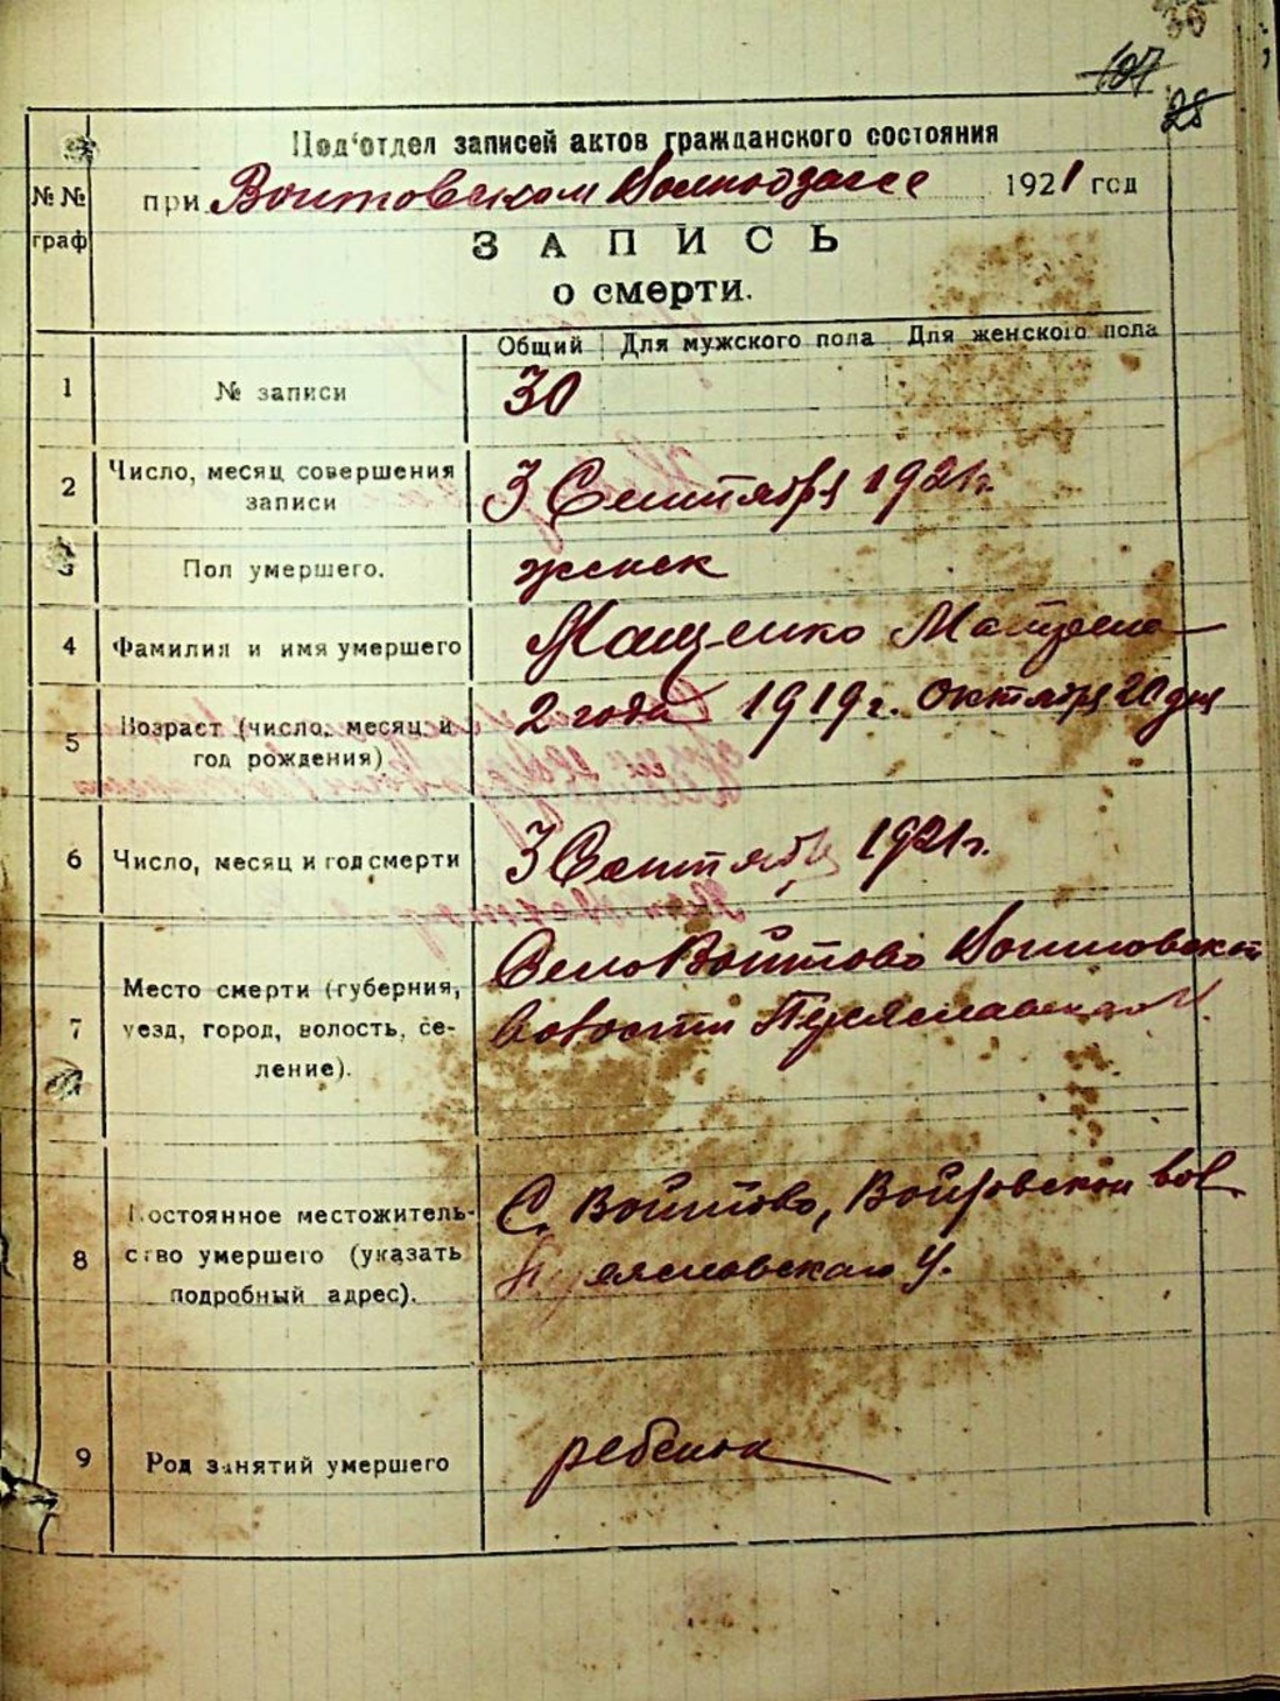 107
28
Под'отдел записей актов гражданского состояния
№ № граф
при Воитовском Волподзагсе 1921 год
ЗАПИСЬ
о смерти.
Общий Для мужского пола Для женского пола
1 № записи 30
2 Число, месяц совершения записи
3 Сентября 1921г.
3 Пол умершего. женск
4 Фамилия и имя умершего Мащенко Матрена
5 Возраст (число, месяц и год рождения)
2 года 1919г. Октября 20 дня
6 Число, месяц и год смерти 3 Сентября 1921г.
7 Место смерти (губерния, уезд, город, волость, селение).
Село Войтово Войтовской
Волости Переяславского У.
8 Постоянное местожительство умершего (указать подробный адрес).
С. Войтово, Войтовской вол
Переяславского У.
9 Род занятий умершего ребенок